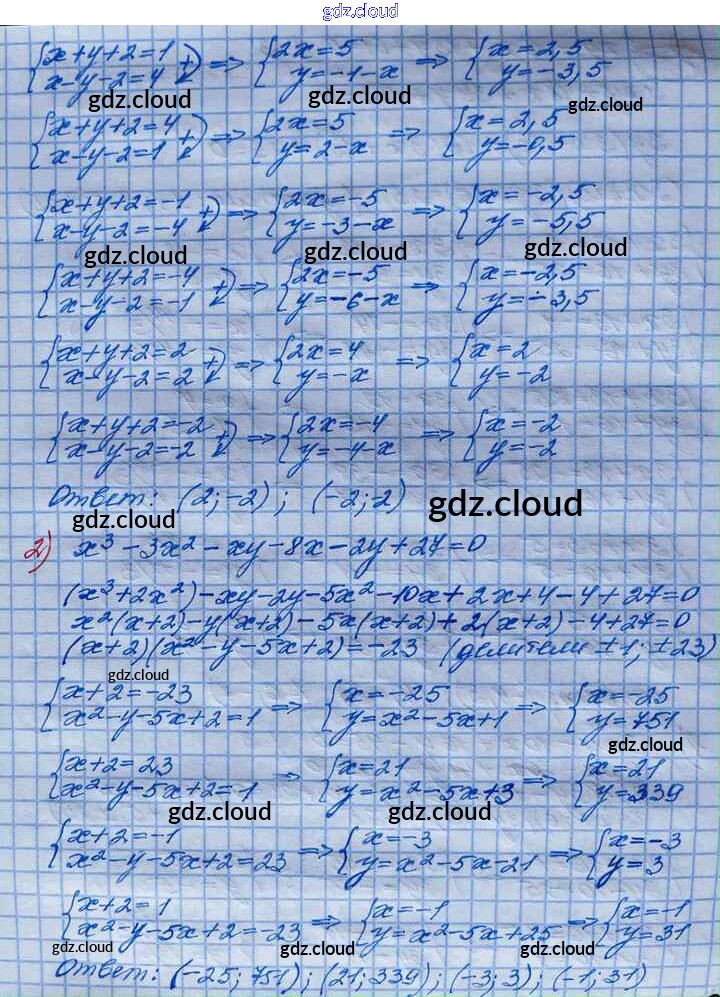 gdz.cloud
{x+y+2=1 x-y-2=4 +) => {2x=5 y=-1-x => {x=2,5 y=-3,5
gdz.cloud gdz.cloud gdz.cloud
{x+y+2=4 x-y-2=1 +) => {2x=5 y=2-x => {x=2,5 y=-0,5
{x+y+2=-1 x-y-2=-4 +) => {2x=-5 y=-3-x => {x=-2,5 y=-5,5
gdz.cloud gdz.cloud gdz.cloud
{x+y+2=-4 x-y-2=-1 +) => {2x=-5 y=-6-x => {x=-2,5 y=-3,5
{x+y+2=2 x-y-2=2 +) => {2x=4 y=-x => {x=2 y=-2
{x+y+2=-2 x-y-2=-2 +) => {2x=-4 y=-4-x => {x=-2 y=-2
Ответ: (2;-2); (-2;-2)
gdz.cloud gdz.cloud
2) x³-3x²-xy-8x-2y+27=0
(x³+2x²)-xy-2y-5x²-10x+2x+4-4+27=0
x²(x+2)-y(x+2)-5x(x+2)+2(x+2)-4+27=0
(x+2)(x²-y-5x+2)=-23 (делители ±1; ±23)
gdz.cloud
{x+2=-23 x²-y-5x+2=1 => {x=-25 y=x²-5x+1 => {x=-25 y=751
gdz.cloud
{x+2=23 x²-y-5x+2=-1 => {x=21 y=x²-5x+3 => {x=21 y=339
gdz.cloud gdz.cloud
{x+2=-1 x²-y-5x+2=23 => {x=-3 y=x²-5x-21 => {x=-3 y=3
{x+2=1 x²-y-5x+2=-23 => {x=-1 y=x²-5x+25 => {x=-1 y=31
gdz.cloud gdz.cloud gdz.cloud
Ответ: (-25; 751); (21; 339); (-3; 3); (-1; 31)